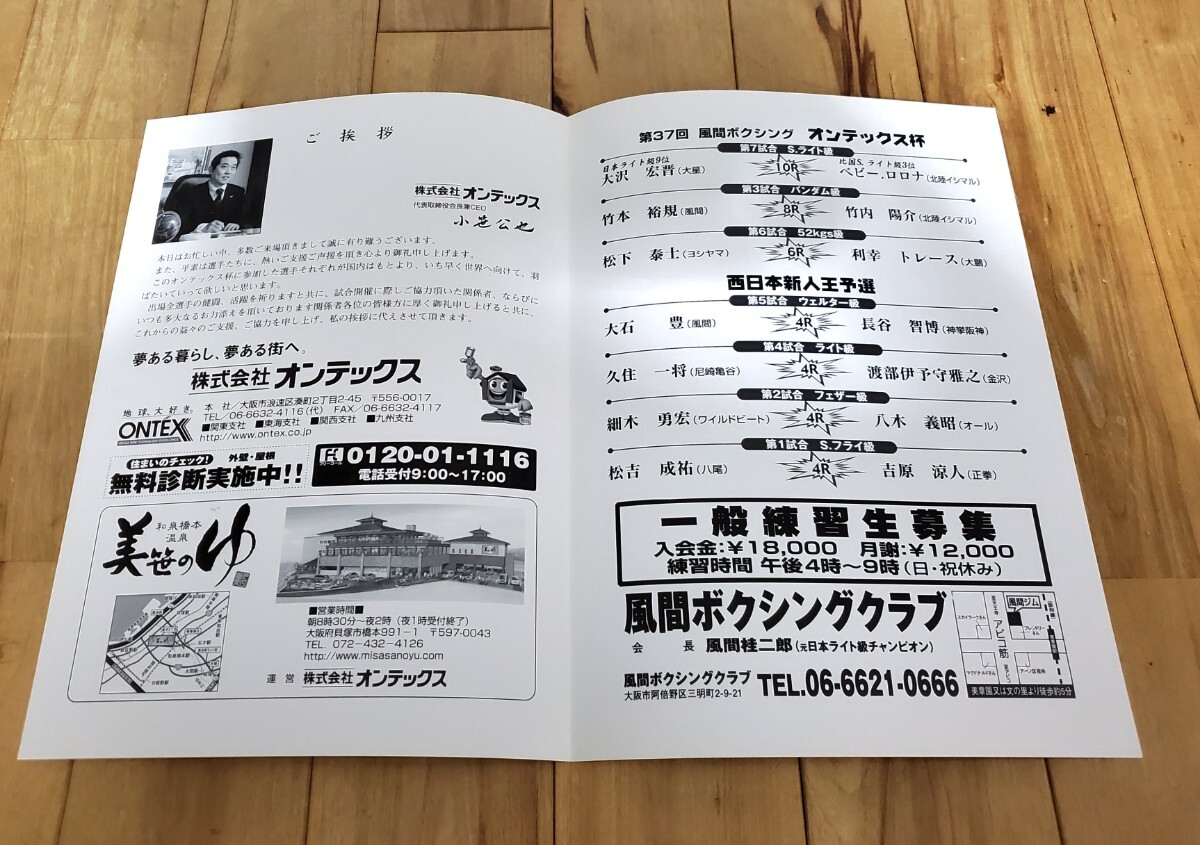 ご挨拶
株式会社 オンテックス
代表取締役会長兼CEO
小笹公也
本日はお忙しい中、多数ご来場頂きまして誠に有り難うございます。
また、平素は選手たちに、熱いご支援ご声援を頂き心より御礼申し上げます。
このオンテックス杯に参加した選手それぞれが国内はもとより、いち早く世界へ向けて、羽
ばたいていって欲しいと思います。
出場全選手の健闘、活躍を祈りますと共に、試合開催に際しご協力頂いた関係者、ならびに
いつも多大なるお力添えを頂いております関係者各位の皆様方に厚く御礼申し上げると共に、
これからの益々のご支援、ご協力を申し上げ、私の挨拶に代えさせて頂きます。
夢ある暮らし、夢ある街へ。
株式会社 オンテックス
地球、大好き。
ONTEX
本 社/大阪市浪速区湊町2丁目2-45 〒556-0017
TEL/06-6632-4116(代) FAX/06-6632-4117
■関東支社 ■東海支社 ■関西支社 ■九州支社
http://www.ontex.co.jp
住まいのチェック! 外壁・屋根
無料診断実施中!!
0120-01-1116
電話受付9:00〜17:00
和泉橋本
温泉
美笹のゆ
■営業時間■
朝8時30分〜夜2時(夜1時受付終了)
大阪府貝塚市橋本991−1 〒597-0043
TEL 072-432-4126
http://www.misasanoyu.com
運営 株式会社 オンテックス
第37回 風間ボクシング オンテックス杯
第7試合 S.ライト級
日本ライト級9位
大沢 宏晋(大星)
10R
比国S.ライト級3位
ベビー.ロロナ(北陸イシマル)
第3試合 バンダム級
竹本 裕規(風間) 8R 竹内 陽介(北陸イシマル)
第6試合 52kgs級
松下 泰士(ヨシヤマ) 6R 利幸 トレース(大鵬)
西日本新人王予選
第5試合 ウェルター級
大石 豊(風間) 4R 長谷 智博(神拳阪神)
第4試合 ライト級
久住 一将(尼崎亀谷) 4R 渡部伊予守雅之(金沢)
第2試合 フェザー級
細木 勇宏(ワイルドビート) 4R 八木 義昭(オール)
第1試合 S.フライ級
松吉 成祐(八尾) 4R 吉原 涼人(正拳)
一般練習生募集
入会金:¥18,000 月謝:¥12,000
練習時間 午後4時〜9時(日・祝休み)
風間ボクシングクラブ
会 長 風間桂二郎(元日本ライト級チャンピオン)
風間ボクシングクラブ
大阪市阿倍野区三明町2-9-21
TEL.06-6621-0666
風間ジム
アビコ筋
美章園又は文の里より徒歩約5分